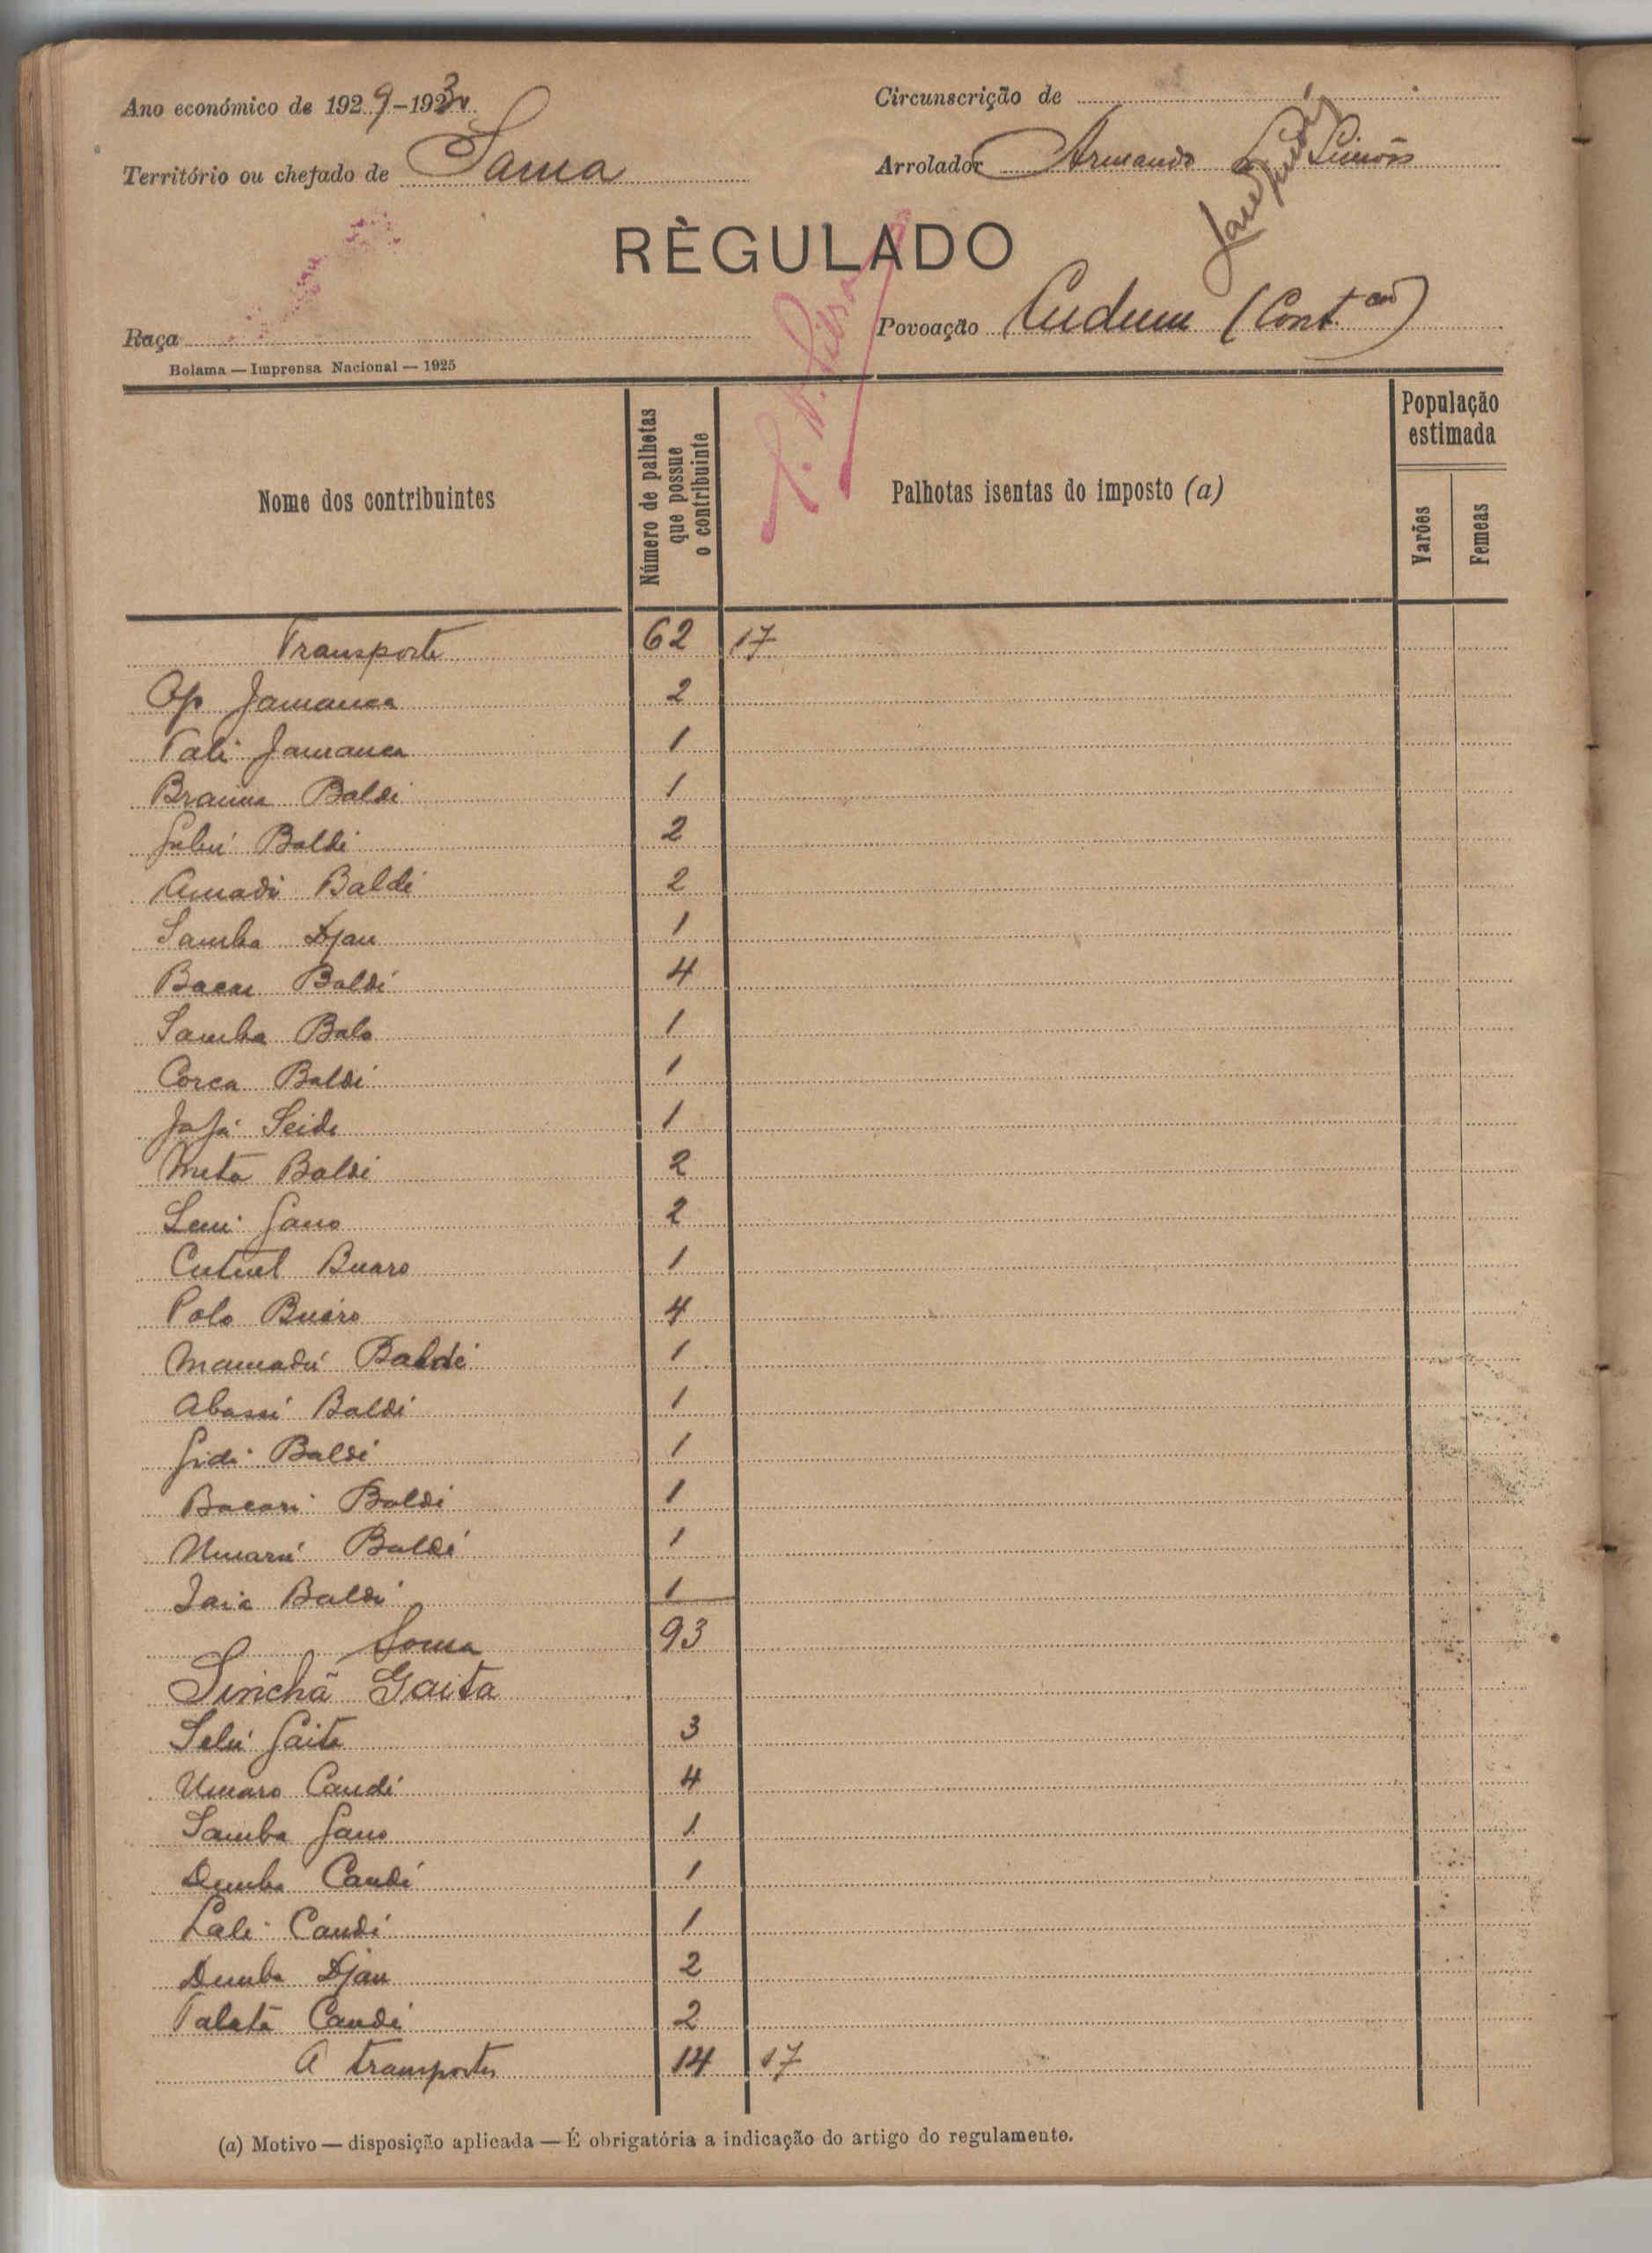 Ano económico de 1929-1930
Circunscrição de
Território ou chefado de Sama
Arrolador Armando Simões
RÈGULADO
Raça
Povoação Cudum (Cont.ção)
Bolama — Imprensa Nacional — 1925
Nome dos contribuintes
Número de palhotas que possue o contribuinte
Palhotas isentas do imposto (a)
População estimada
Varões
Femeas
Transporte 62 17
Op Jamanca 2
Tali Jamanca 1
Braima Baldé 1
Baldé 2
Amadú Baldé 2
Samba Djau 1
Bacar Baldé 4
Samba Balo 1
Corca Baldé 1
Jajá Seide 1
Meta Baldé 2
Gano 2
Cutuel Buaro 1
Polo Buáro 4
Mamadú Baldé 1
Abassi Baldé 1
Gidi Baldé 1
Bacari Baldé 1
Umarú Baldé 1
Jaia Baldé 1
Soma 93
Sinchã Gaita
Selú Gaita 3
Umaro Candé 4
Samba Gano 1
Demba Candé 1
Lali Candé 1
Demba Djau 2
Talata Candé 2
A transportar 14 17
(a) Motivo — disposição aplicada — É obrigatória a indicação do artigo do regulamento.